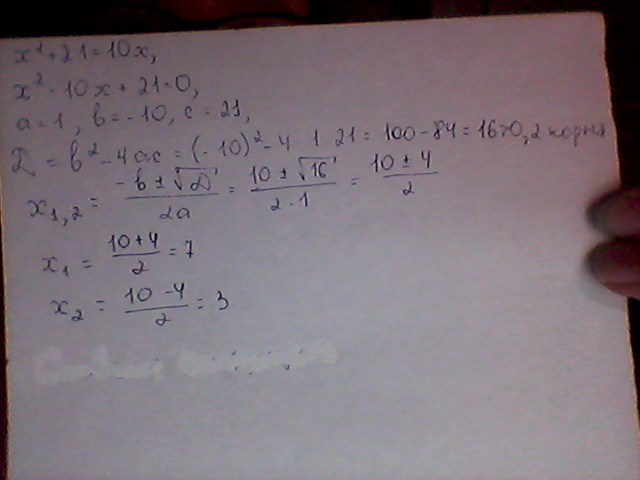 x² + 21 = 10x,
x² - 10x + 21 = 0,
a = 1, b = -10, c = 21,
D = b² - 4ac = (-10)² - 4 · 1 · 21 = 100 - 84 = 16 > 0, 2 корня
x₁,₂ = (-b ± √D)/(2a) = (10 ± √16)/(2 · 1) = (10 ± 4)/2
x₁ = (10 + 4)/2 = 7
x₂ = (10 - 4)/2 = 3